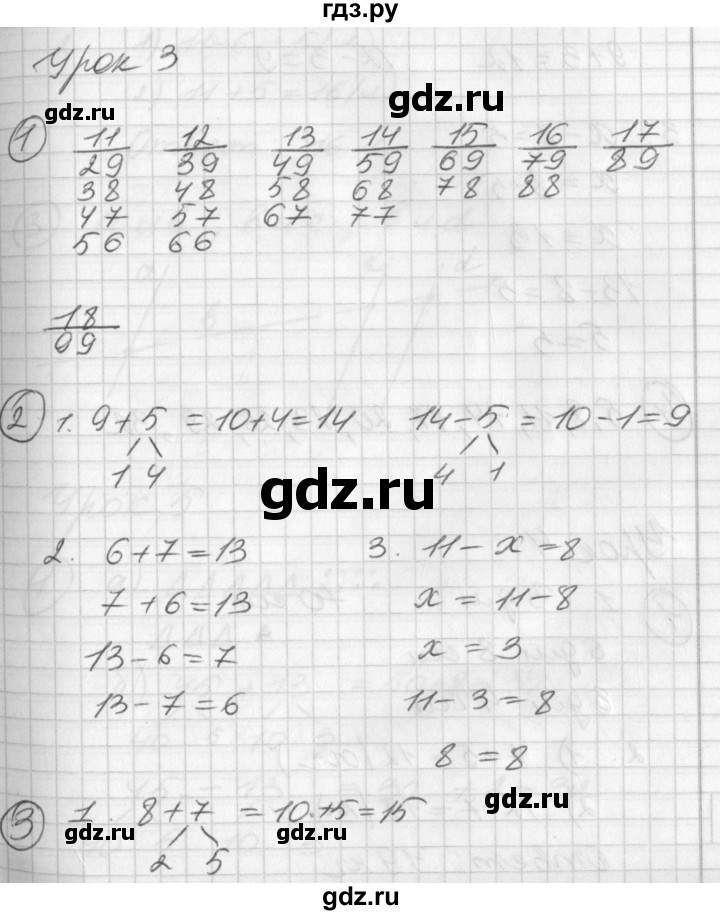 гдз.ру
Урок 3
gdz.ru gdz.ru
1 11 12 13 14 15 16 17
29 39 49 59 69 79 89
38 48 58 68 78 88
47 57 67 77
56 66
18
99
2 1. 9+5 = 10+4=14 14-5 = 10-1=9
1 4 4 1
gdz.ru
2. 6+7=13 3. 11-x=8
7+6=13 x=11-8
13-6=7 x=3
13-7=6 11-3=8
8=8
gdz.ru
3 1. 8+7 = 10+5=15
gdz.ru gdz.ru
2 5
gdz.ru